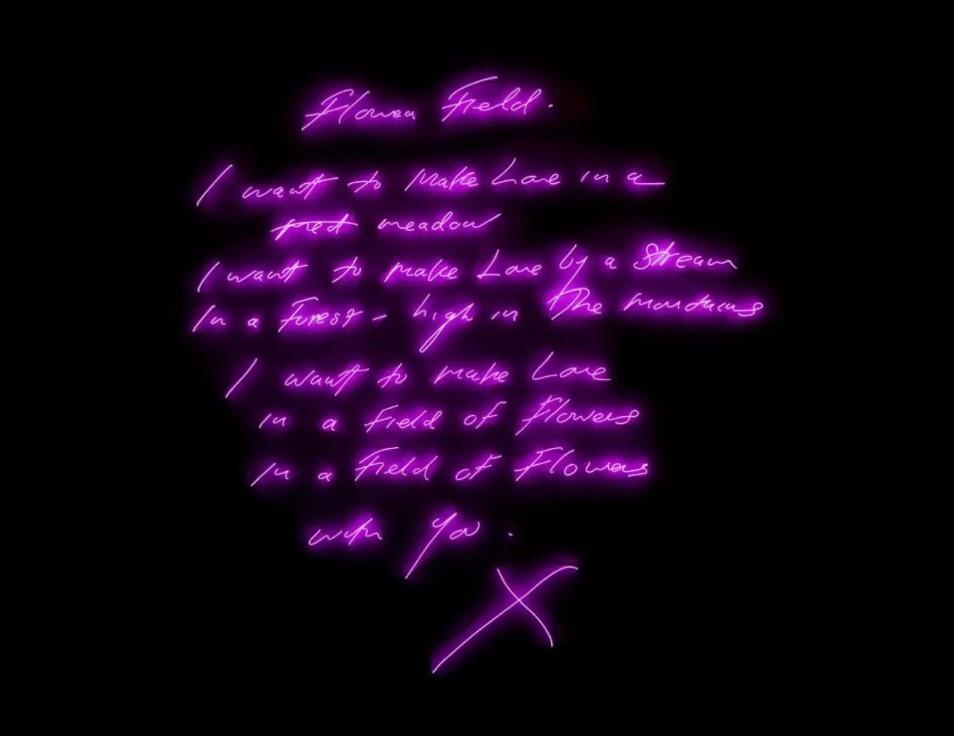 Flower Field.
I want to Make Love in a
meadow
I want to make Love by a Stream
In a Forest - high in The mountains
I want to make Love
in a Field of Flowers
In a Field of Flowers
with You.
X